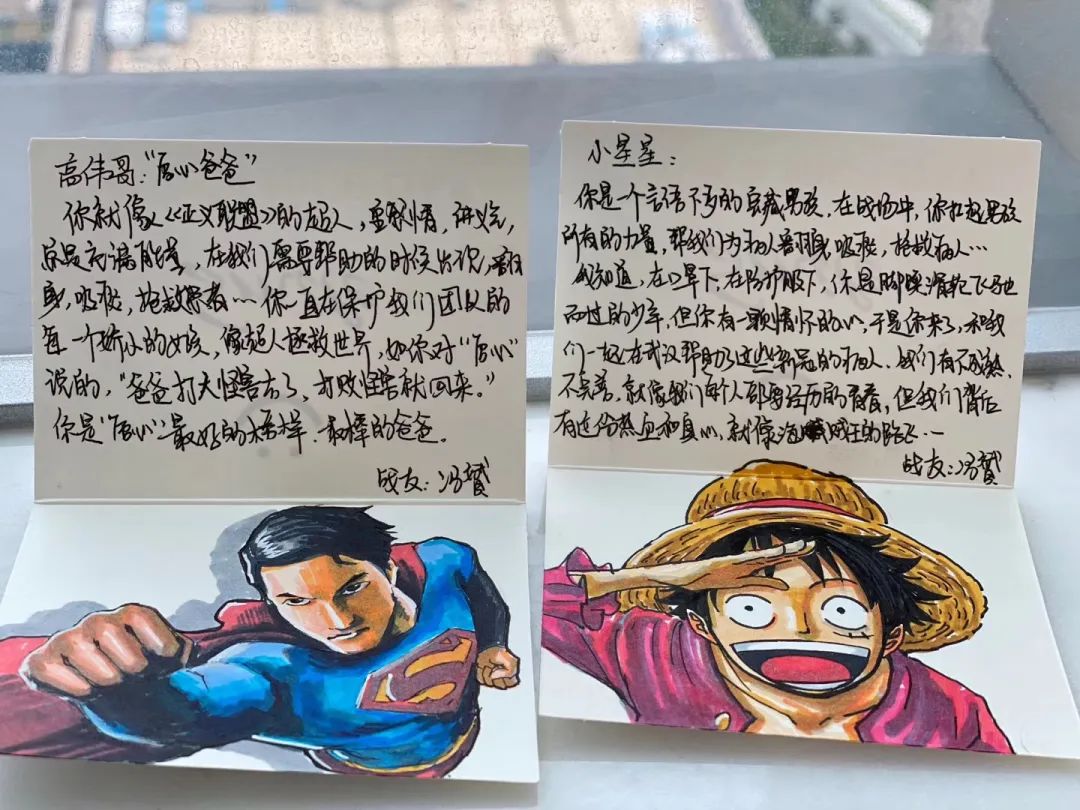 高伟哥：“唇心爸爸”
你就像《正义联盟》的超人，重感情，讲义气，
总是充满能量，在我们需要帮助的时候出现，翻
身，吸痰，抢救患者…你一直在保护我们团队的
每一个娇小的女孩，像超人拯救世界，如你对“
说的，“爸爸打大怪兽去了，打败怪兽就回来。”
你是 最好的榜样，最棒的爸爸。
战友：冯赟
小星星：
你是一个言语不多的宝藏男孩，在战场中，你扛起男孩
所有的力量，帮我们为病人翻身，吸痰，抢救病人…
我知道，在口罩下，在防护服下，你是脚踩滑轮飞驰
而过的少年，但你有一颗情怀的心，于是你来了，和我
们一起在武汉帮助了这些新冠的病人，我们有不成熟、
不完善，就像我们每个人都要经历的青春，但我们背后
有这份热血和真心，就像海贼王的路飞…
战友：冯赟